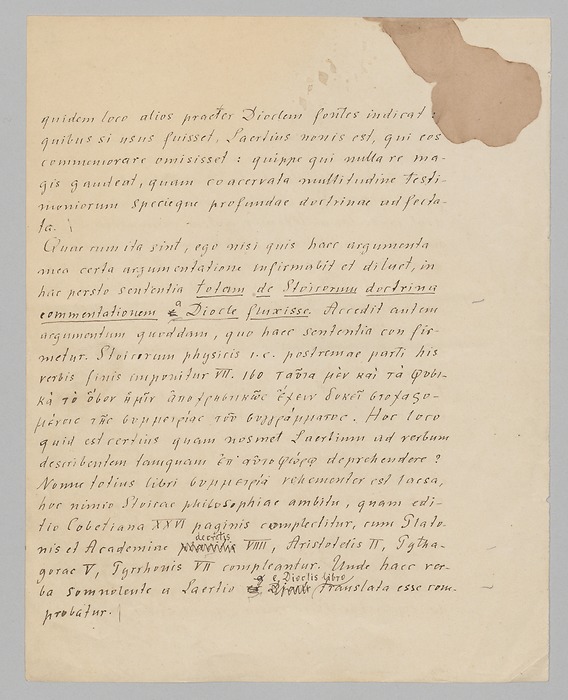 quidem loco alios praeter Dioclem fontes indicat:
quibus si usus fuisset, Laertius non is est, qui eos
commemorare omisisset: quippe qui nulla re ma-
gis gaudeat, quam coacervata multitudine testi-
moniorum specieque profundae doctrinae adfecta-
ta.
Quae cum ita sint, ego nisi quis haec argumenta
mea certa argumentatione infirmabit et diluet, in
hac persto sententia totam de Stoicorum doctrina
commentationem a Diocle fluxisse. Accedit autem
argumentum quoddam, quo haec sententia confir-
metur. Stoicorum physicis i.e. postremae parti his
verbis finis imponitur VII. 160 ταῦτα μὲν καὶ τὰ φυσι-
κὰ τὸ ὅσον ἡμῖν ἀποχρώντως ἔχειν δοκεῖ στοχαζο-
μένοις τῆς συμμετρίας τοῦ συγγράμματος. Hoc loco
quid est certius quam nosmet Laertium ad verbum
describentem tamquam ἐπ' αὐτοφώρῳ deprehendere?
Nonne totius libri συμμετρία vehementer est laesa,
hoc nimio Stoicae philosophiae ambitu, quam edi-
tio Cobetiana XXVI paginis complectitur, cum Plato-
nis et Academiae decretis VIIII, Aristotelis II, Pytha-
gorae V, Pyrrhonis VII compleantur. Unde haec ver-
ba somnolente a Laertio e Dioclis libro translata esse com-
probatur.